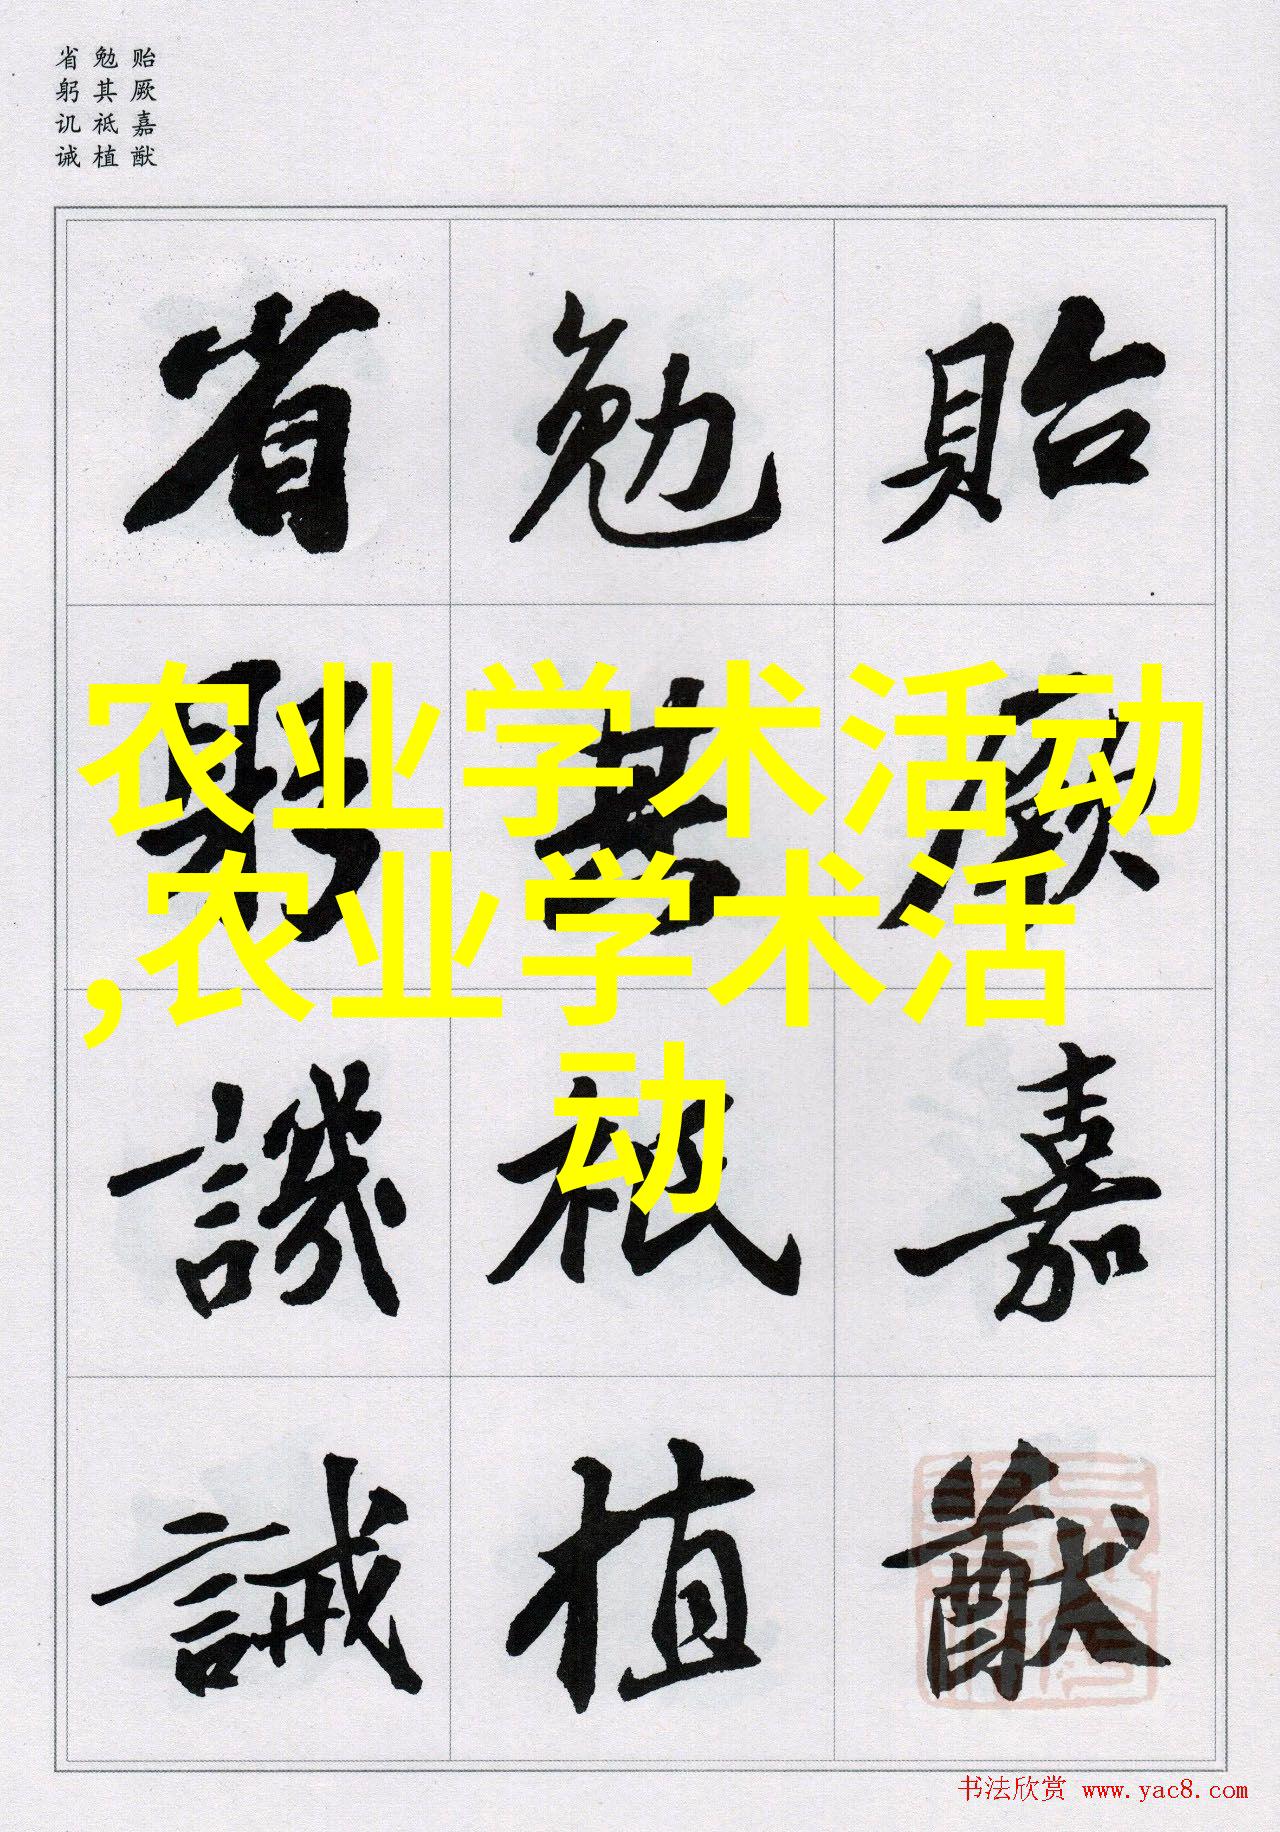 贻厥嘉猷
勉其祗植
省躬讥诫
貽厥嘉猷
勉其祗植
省躬譏誡
农业学术活动
,农业学术活
动
书法欣赏 www.yac8.com